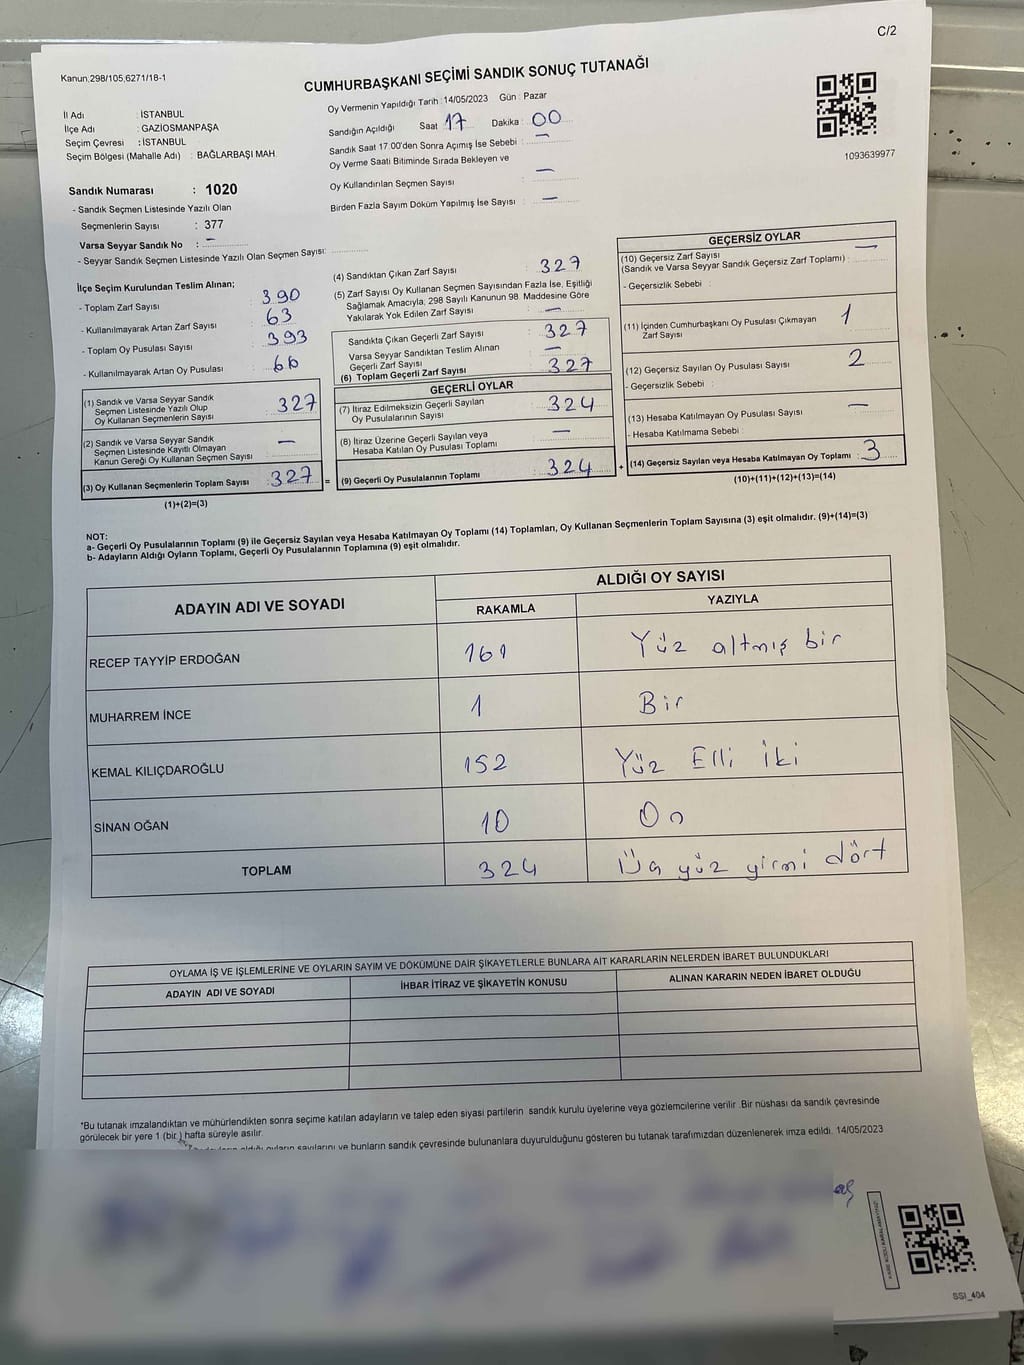 C/2
Kanun:298/105,6271/18-1
CUMHURBAŞKANI SEÇİMİ SANDIK SONUÇ TUTANAĞI
İl Adı : İSTANBUL
İlçe Adı : GAZİOSMANPAŞA
Seçim Çevresi : İSTANBUL
Seçim Bölgesi (Mahalle Adı) : BAĞLARBAŞI MAH.
Oy Vermenin Yapıldığı Tarih : 14/05/2023 Gün : Pazar
Sandığın Açıldığı Saat : 17 Dakika : 00
Sandık Saat 17:00'den Sonra Açımış İse Sebebi : —
Oy Verme Saati Bitiminde Sırada Bekleyen ve
Oy Kullandırılan Seçmen Sayısı : —
Birden Fazla Sayım Döküm Yapılmış İse Sayısı : —
1093639977
Sandık Numarası : 1020
- Sandık Seçmen Listesinde Yazılı Olan
Seçmenlerin Sayısı : 377
Varsa Seyyar Sandık No : —
- Seyyar Sandık Seçmen Listesinde Yazılı Olan Seçmen Sayısı:
İlçe Seçim Kurulundan Teslim Alınan;
- Toplam Zarf Sayısı : 390
- Kullanılmayarak Artan Zarf Sayısı : 63
- Toplam Oy Pusulası Sayısı : 393
- Kullanılmayarak Artan Oy Pusulası : 66
(1) Sandık ve Varsa Seyyar Sandık
Seçmen Listesinde Yazılı Olup
Oy Kullanan Seçmenlerin Sayısı : 327
(2) Sandık ve Varsa Seyyar Sandık
Seçmen Listesinde Kayıtlı Olmayan
Kanun Gereği Oy Kullanan Seçmen Sayısı : —
(3) Oy Kullanan Seçmenlerin Toplam Sayısı : 327 =
(1)+(2)=(3)
(4) Sandıktan Çıkan Zarf Sayısı : 327
(5) Zarf Sayısı Oy Kullanan Seçmen Sayısından Fazla İse, Eşitliği
Sağlamak Amacıyla; 298 Sayılı Kanunun 98. Maddesine Göre
Yakılarak Yok Edilen Zarf Sayısı : —
Sandıkta Çıkan Geçerli Zarf Sayısı : 327
Varsa Seyyar Sandıktan Teslim Alınan
Geçerli Zarf Sayısı : —
(6) Toplam Geçerli Zarf Sayısı : 327
GEÇERLİ OYLAR
(7) İtiraz Edilmeksizin Geçerli Sayılan
Oy Pusulalarının Sayısı : 324
(8) İtiraz Üzerine Geçerli Sayılan veya
Hesaba Katılan Oy Pusulası Toplamı : —
(9) Geçerli Oy Pusulalarının Toplamı : 324 +
GEÇERSİZ OYLAR
(10) Geçersiz Zarf Sayısı
(Sandık ve Varsa Seyyar Sandık Geçersiz Zarf Toplamı) : —
- Geçersizlik Sebebi :
(11) İçinden Cumhurbaşkanı Oy Pusulası Çıkmayan
Zarf Sayısı : 1
(12) Geçersiz Sayılan Oy Pusulası Sayısı : 2
- Geçersizlik Sebebi :
(13) Hesaba Katılmayan Oy Pusulası Sayısı : —
- Hesaba Katılmama Sebebi :
(14) Geçersiz Sayılan veya Hesaba Katılmayan Oy Toplamı : 3
(10)+(11)+(12)+(13)=(14)
NOT:
a- Geçerli Oy Pusulalarının Toplamı (9) ile Geçersiz Sayılan veya Hesaba Katılmayan Oy Toplamı (14) Toplamları, Oy Kullanan Seçmenlerin Toplam Sayısına (3) eşit olmalıdır. (9)+(14)=(3)
b- Adayların Aldığı Oyların Toplamı, Geçerli Oy Pusulalarının Toplamına (9) eşit olmalıdır.
ADAYIN ADI VE SOYADI
ALDIĞI OY SAYISI
RAKAMLA YAZIYLA
RECEP TAYYİP ERDOĞAN 161 Yüz altmış bir
MUHARREM İNCE 1 Bir
KEMAL KILIÇDAROĞLU 152 Yüz Elli İki
SİNAN OĞAN 10 On
TOPLAM 324 Üç yüz yirmi dört
OYLAMA İŞ VE İŞLEMLERİNE VE OYLARIN SAYIM VE DÖKÜMÜNE DAİR ŞİKAYETLERLE BUNLARA AİT KARARLARIN NELERDEN İBARET BULUNDUKLARI
ADAYIN ADI VE SOYADI İHBAR İTİRAZ VE ŞİKAYETİN KONUSU ALINAN KARARIN NEDEN İBARET OLDUĞU
*Bu tutanak imzalandıktan ve mühürlendikten sonra seçime katılan adayların ve talep eden siyasi partilerin sandık kurulu üyelerine veya gözlemcilerine verilir. Bir nüshası da sandık çevresinde
görülecek bir yere 1 (bir) hafta süreyle asılır.
aldığı oyların sayılarını ve bunların sandık çevresinde bulunanlara duyurulduğunu gösteren bu tutanak tarafımızdan düzenlenerek imza edildi. 14/05/2023
KARE KODU KARALAMAYINIZ!
SSI_404